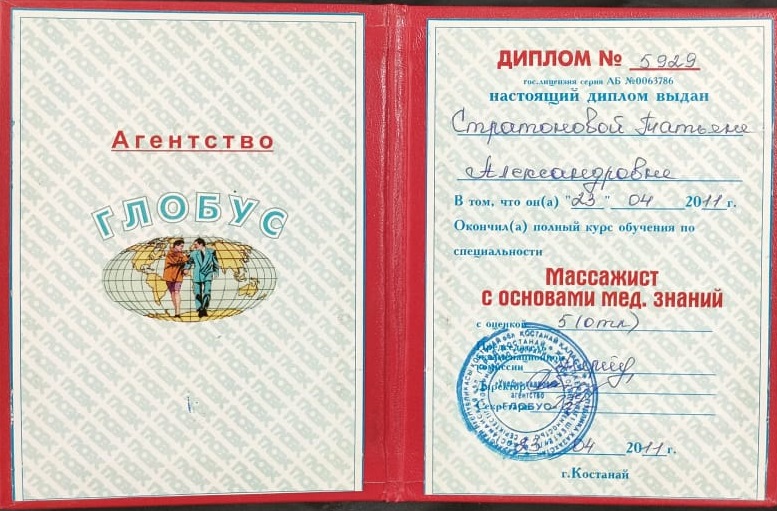 Агентство
ГЛОБУС
ДИПЛОМ № 5929
гос.лицензия серия АБ №0063786
настоящий диплом выдан
Стратоновой Татьяне
Александровне
В том, что он(а) "23" 04 2011г.
Окончил(а) полный курс обучения по
специальности
Массажист
с основами мед. знаний
с оценкой 5 (отл)
Председатель
экзаменационной
комиссии
Директор
Секретарь
АГЕНТСТВО
ГЛОБУС
23 04 2011г.
г.Костанай